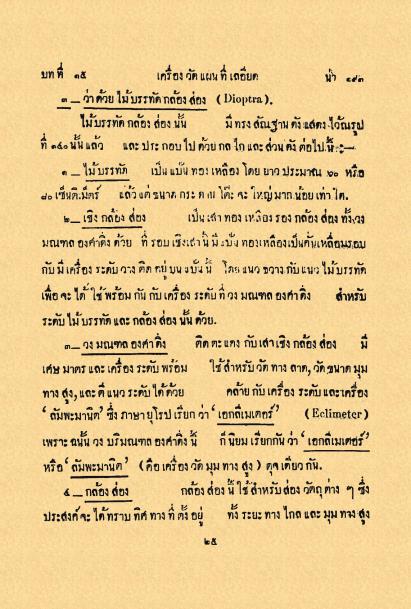 บทที่ ๑๕ เครื่อง วัด แผน ที่ เลอียด น่า ๑๙๓
๓ — ว่า ด้วย ไม้ บรรทัด กล้อง ส่อง (Dioptra).
ไม้ บรรทัด กล้อง ส่อง นั้น มี ทรง สัณฐาน ดัง แสดง ไว้ ณ รูป
ที่ ๑๔๐ นั้น แล้ว และ ประกอบ ไป ด้วย กล ไก และ ส่วน ดัง ต่อ ไป นี้:—
๑ — ไม้ บรรทัด เป็น แบ็น ทอง เหลือง โดย ยาว ประมาณ ๖๐ หรือ
๘๐ เซ็นติเม็ตร์ แล้ว แต่ ขนาด กระ ดาน โต๊ะ จะ ใหญ่ มาก น้อย เท่า ใด.
๒ — เชิง กล้อง ส่อง เป็น เสา ทอง เหลือง รอง กล้อง ส่อง ทั้ง วง
มณฑล องศา ดิ่ง ด้วย ที่ รอบ เชิง เสา นี้ มี แป้น ทองเหลือง เป็น คัน เหลื่อม รอบ
กับ มี เครื่อง ระดับ วาง ติด หยู่ บน แป้น นี้ โดย แนว ขวาง กับ แนว ไม้ บรรทัด
เพื่อ จะ ได้ ใช้ พร้อม กัน กับ เครื่อง ระดับ ที่ วง มณฑล องศา ดิ่ง สำหรับ
ระดับ ไม้ บรรทัด และ กล้อง ส่อง นั้น ด้วย.
๓ — วง มณฑล องศา ดิ่ง ติด ตะแคง กับ เสา เชิง กล้อง ส่อง มี
เศษ มาตร และ เครื่อง ระดับ พร้อม ใช้ สำหรับ วัด ทาง ลาด, วัด ขนาด มุม
ทาง สูง, และ ตี แนว ระดับ ได้ ด้วย คล้าย กับ เครื่อง ระดับ และ เครื่อง
‘ลัมพะมานิต’ ซึ่ง ภาษา ยุโรป เรียก ว่า ‘เอกลีเมเตอร์’ (Eclimeter)
เพราะ ฉนั้น วง บริมณฑล องศาดิ่ง นี้ ก็ นิยม เรียกกัน ว่า ‘เอกลีเมเตอร์’
หรือ ‘ลัมพะมานิต’ (คือ เครื่อง วัด มุม ทาง สูง) ดุจ เดียว กัน.
๔ — กล้อง ส่อง กล้อง ส่อง นี้ ใช้ สำหรับ ส่อง วัตถุ ต่าง ๆ ซึ่ง
ประสงค์ จะ ได้ ทราบ ทิศ ทาง ที่ ตั้ง อยู่ ทั้ง ระยะ ทาง ไกล และ มุม ทาง สูง
๒๕